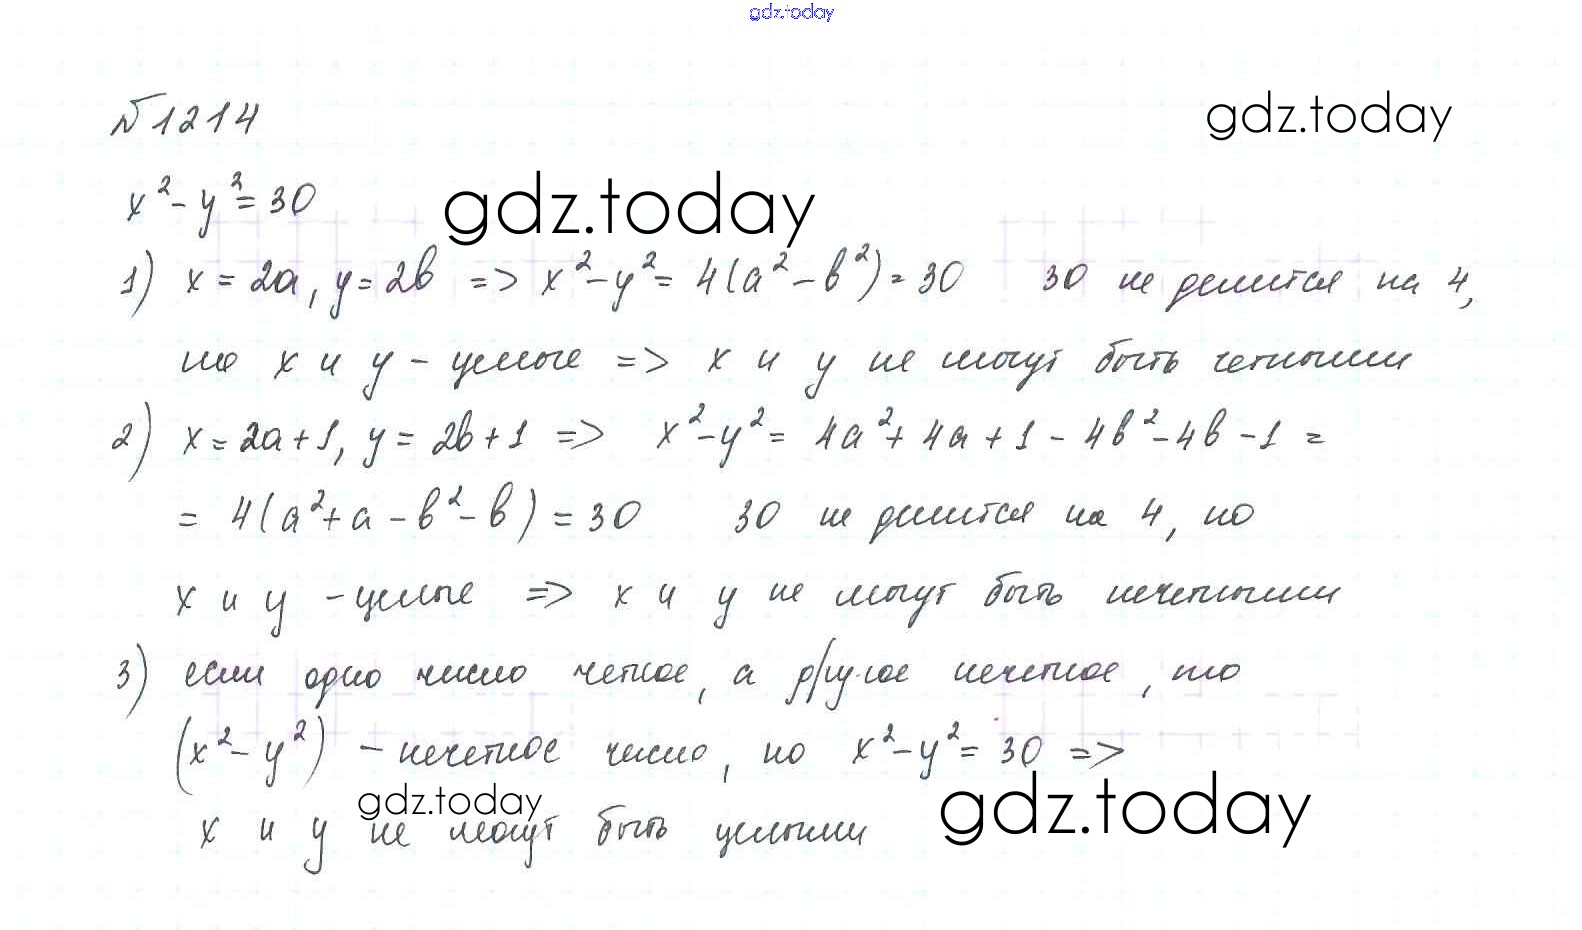 gdz.today
№1214
gdz.today
x² - y² = 30
gdz.today
1) x = 2a, y = 2b => x² - y² = 4(a² - b²) = 30 30 не делится на 4,
но x и y - целые => x и y не могут быть четными
2) x = 2a + 1, y = 2b + 1 => x² - y² = 4a² + 4a + 1 - 4b² - 4b - 1 =
= 4(a² + a - b² - b) = 30 30 не делится на 4, но
x и y - целые => x и y не могут быть нечетными
3) если одно число четное, а другое нечетное, то
(x² - y²) - нечетное число, но x² - y² = 30 =>
gdz.today
gdz.today
x и y не могут быть целыми